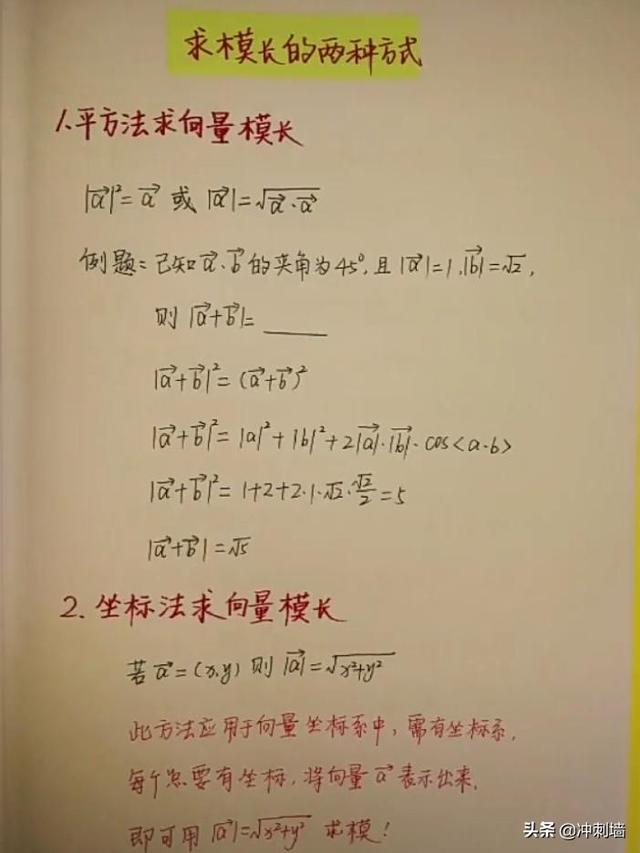 求模长的两种方式
1.平方法求向量模长
|a⃗|²=a⃗ 或 |a⃗|=√(a⃗·a⃗)
例题:已知a⃗、b⃗的夹角为45°,且|a⃗|=1,|b⃗|=√2,
则|a⃗+b⃗|=____
|a⃗+b⃗|²=(a⃗+b⃗)²
|a⃗+b⃗|²=|a|²+|b|²+2|a⃗|·|b⃗|·cos<a·b>
|a⃗+b⃗|²=1+2+2·1·√2·√2/2=5
|a⃗+b⃗|=√5
2.坐标法求向量模长
若a⃗=(x,y)则|a⃗|=√(x²+y²)
此方法应用于向量坐标系中,需有坐标系,
每个点要有坐标,将向量a⃗表示出来,
即可用|a⃗|=√(x²+y²) 求模!
头条 @冲刺墙